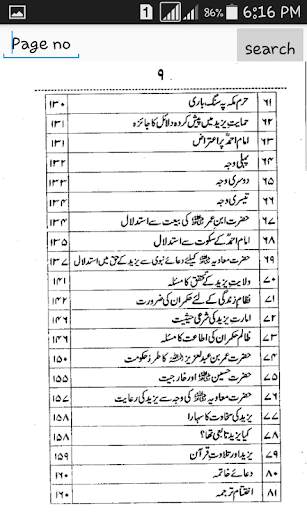 1 86% 6:16 PM
Page no search
۹
۶۱ حرم مکہ پہ سنگ باری ۱۳۰
۶۲ حمایت یزید میں پیش کردہ دلائل کا جائزہ ۱۳۱
۶۳ امام احمدؒ پر اعتراض ۱۳۱
۶۴ پہلی وجہ ۱۳۲
۶۵ دوسری وجہ ۱۳۳
۶۶ تیسری وجہ ۱۳۴
۶۷ حضرت ابن عمر کی بیعت سے استدلال ۱۳۴
۶۸ امام احمدؒ کے سکوت سے استدلال ۱۳۵
۶۹ حضرت معاویہ کیلئے دعائے نبوی سے یزید کے حق میں استدلال ۱۳۷
۷۰ ولایت یزید کے تحقق کا مسئلہ ۱۴۱
۷۱ نظام زندگی کے لئے حکمران کی ضرورت ۱۴۲
۷۲ امارت یزید کی شرعی حیثیت ۱۴۶
۷۳ ظالم حکمران کی اطاعت کا مسئلہ ۱۴۶
۷۴ حضرت عمر بن عبدالعزیز کا طرز حکومت ۱۵۰
۷۵ حضرت حسین اور خارجیت ۱۵۵
۷۶ حضرت معاویہ کی وجہ سے یزید کی رعایت ۱۵۷
۷۷ یزید کی سخاوت کا سہارا ۱۵۸
۷۸ کیا یزید تابعی تھا؟ ۱۵۸
۷۹ یزید اور تلاوت قرآن ۱۵۹
۸۰ دعائے خاتمہ ۱۶۰
۸۱ اختتام ترجمہ ۱۶۰